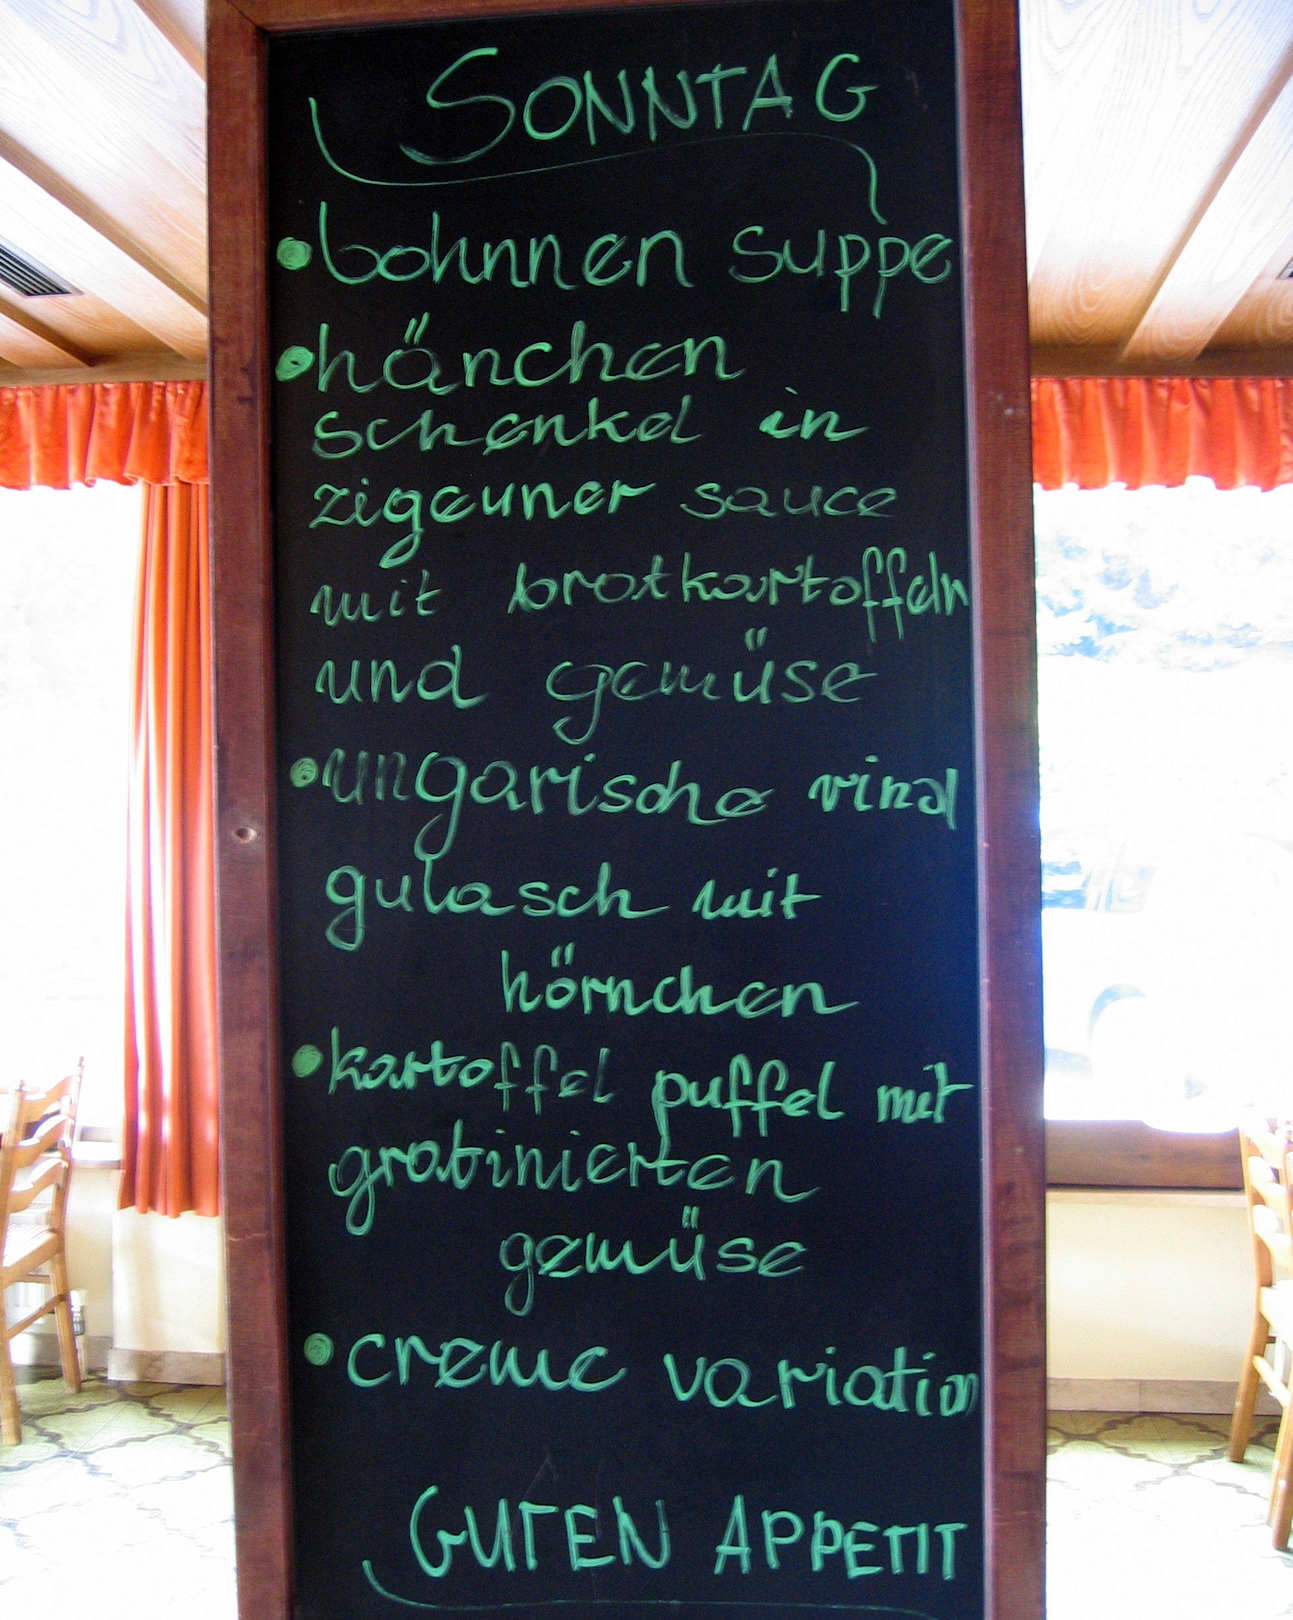 SONNTAG
• bohnnen suppe
• hänchen
schenkel in
zigeuner sauce
mit brotkartoffeln
und gemüse
• ungarische rind
gulasch mit
hörnchen
• kartoffel puffel mit
gratinierten
gemüse
• creme variation
GUTEN APPETIT